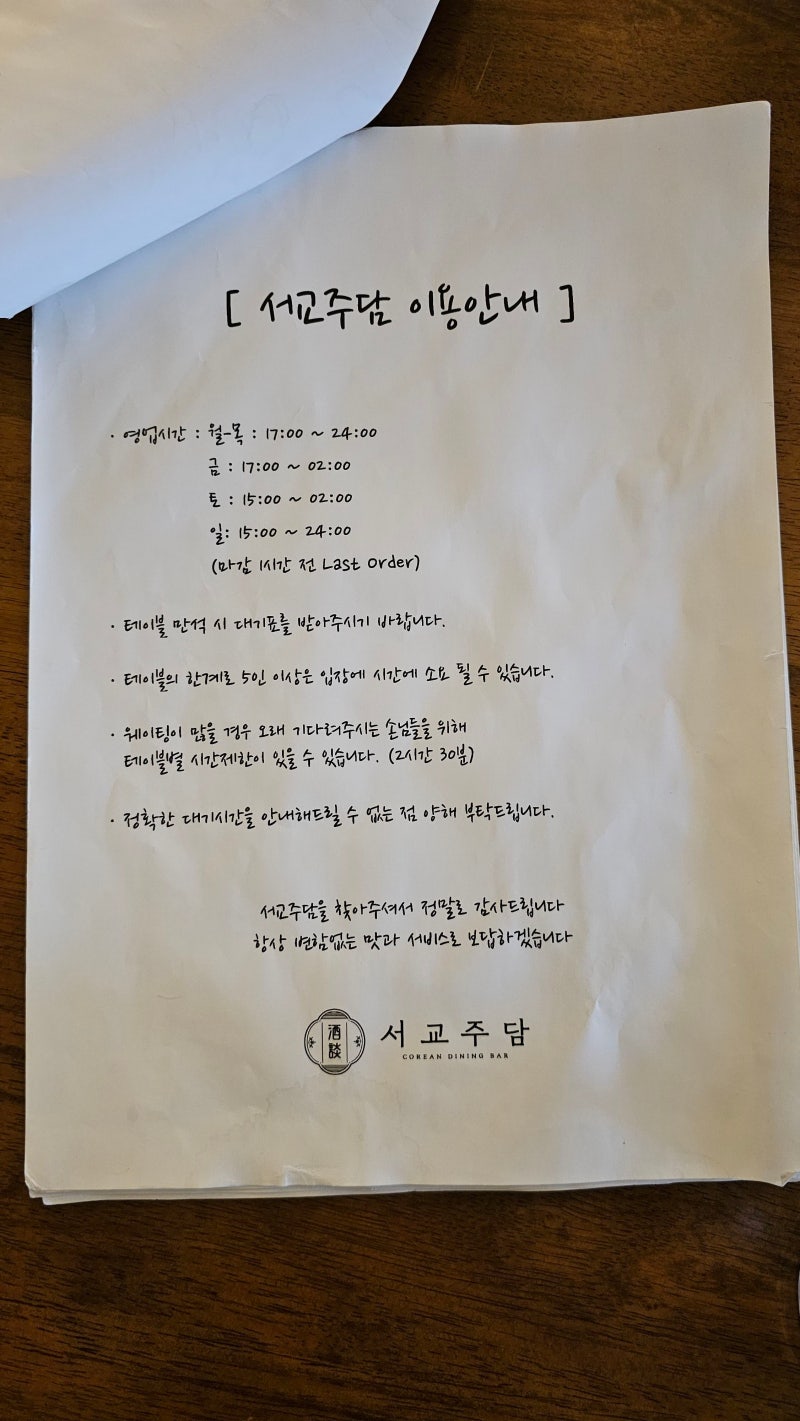 [ 서교주담 이용안내 ]
· 영업시간 : 월-목 : 17:00 ~ 24:00
금 : 17:00 ~ 02:00
토 : 15:00 ~ 02:00
일: 15:00 ~ 24:00
(마감 1시간 전 Last Order)
· 테이블 만석 시 대기표를 받아주시기 바랍니다.
· 테이블의 한계로 5인 이상은 입장에 시간에 소요 될 수 있습니다.
· 웨이팅이 많을 경우 오래 기다려주시는 손님들을 위해
테이블별 시간제한이 있을 수 있습니다. (2시간 30분)
· 정확한 대기시간을 안내해드릴 수 없는 점 양해 부탁드립니다.
서교주담을 찾아주셔서 정말로 감사드립니다
항상 변함없는 맛과 서비스로 보답하겠습니다
酒談 서교주담
COREAN DINING BAR